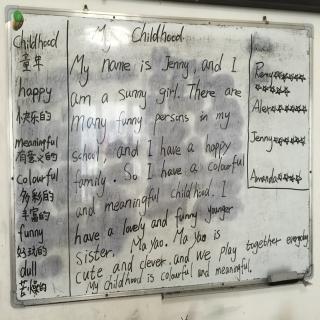 Childhood
童年
happy
快乐的
meaningful
有意义的
colourful
多彩的
丰富的
funny
好玩的
dull
枯燥的
My Childhood.
My name is Jenny, and I
am a sunny girl. There are
many funny persons in my
school, and I have a happy
family. So I have a colourful
and meaningful childhood. I
have a lovely and funny younger
sister, Ma Yao. Ma Yao is
cute and clever. and we play together everyday
My childhood is colourful and meaningful.
Alex
Jenny
Amanda